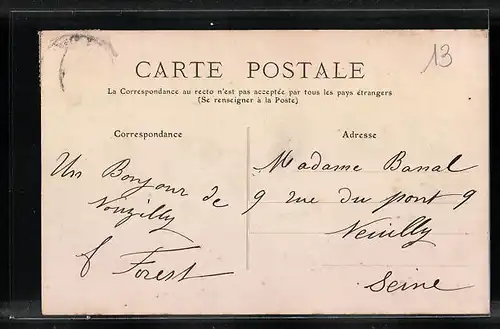 13
CARTE POSTALE
La Correspondance au recto n'est pas acceptée par tous les pays étrangers
(Se renseigner à la Poste)
Correspondance
Un Bonjour de
Nouzilly
f Forest
Adresse
Madame Banal
9 rue du pont 9
Neuilly
Seine